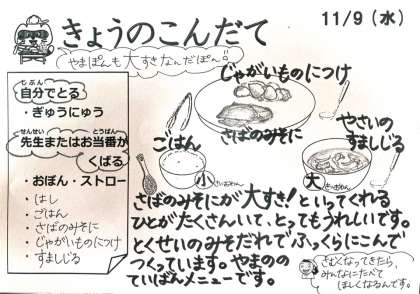 きょうのこんだて
11/9（水）
やまぽんも大すきなんだぽん!!
じぶん
自分でとる
・ぎゅうにゅう
せんせい とうばん
先生またはお当番が
くばる
・おぼん・ストロー
・はし
・ごはん
・さばのみそに
・じゃがいものにつけ
・すましじる
じゃがいものにつけ
さばのみそに
ごはん
小
やさいの
すましじる
大
さばのみそにが大すき！といってくれる
ひとがたくさんいて、とってもうれしいです。
とくせいのみそだれでふっくらにこんで
つくっています。やまのの
ていばんメニューです。
さむくなってきたら、
みんなにたべて
ほしくなるんです。